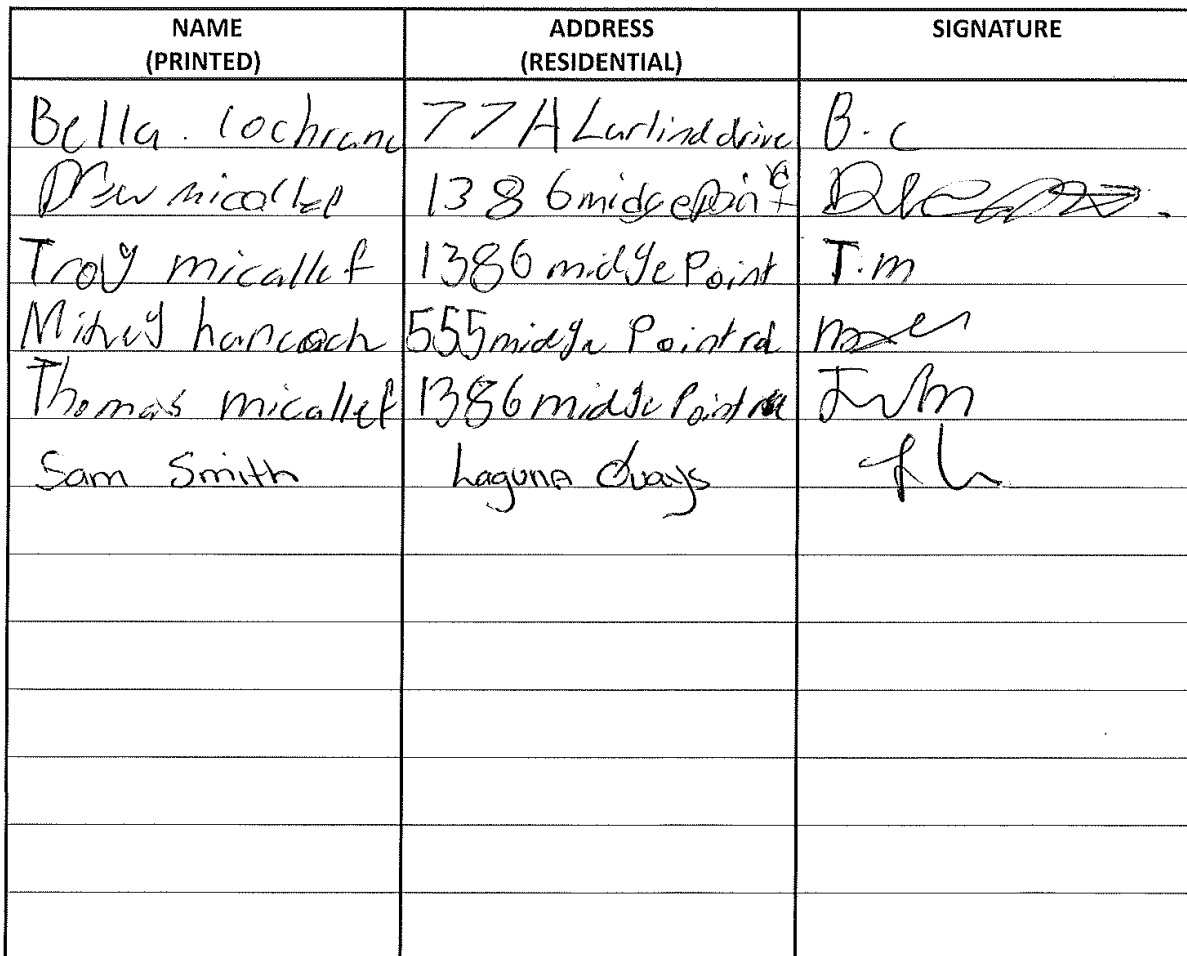 NAME ADDRESS SIGNATURE
(PRINTED) (RESIDENTIAL)
Bella. Cochrane 77A Lurlind drive B.c
Drew micallef 1386 midge Point rd
Troy micallef 1386 midge Point T.m
Mikey hancoch 555 midge Point rd
Thomas micallef 1386 midge Point
Sam Smith Laguna Quays